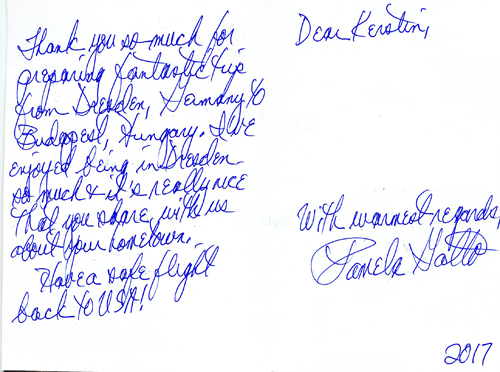 Dear Kerstin,
Thank you so much for
preparing fantastic trip
from Dresden, Germany to
Budapest, Hungary. I've
enjoyed being in Dresden
so much & it's really nice
that you share with us
about your hometown.
Have a safe flight
back to USA!
With warmest regards,
Pamela Gatto
2017